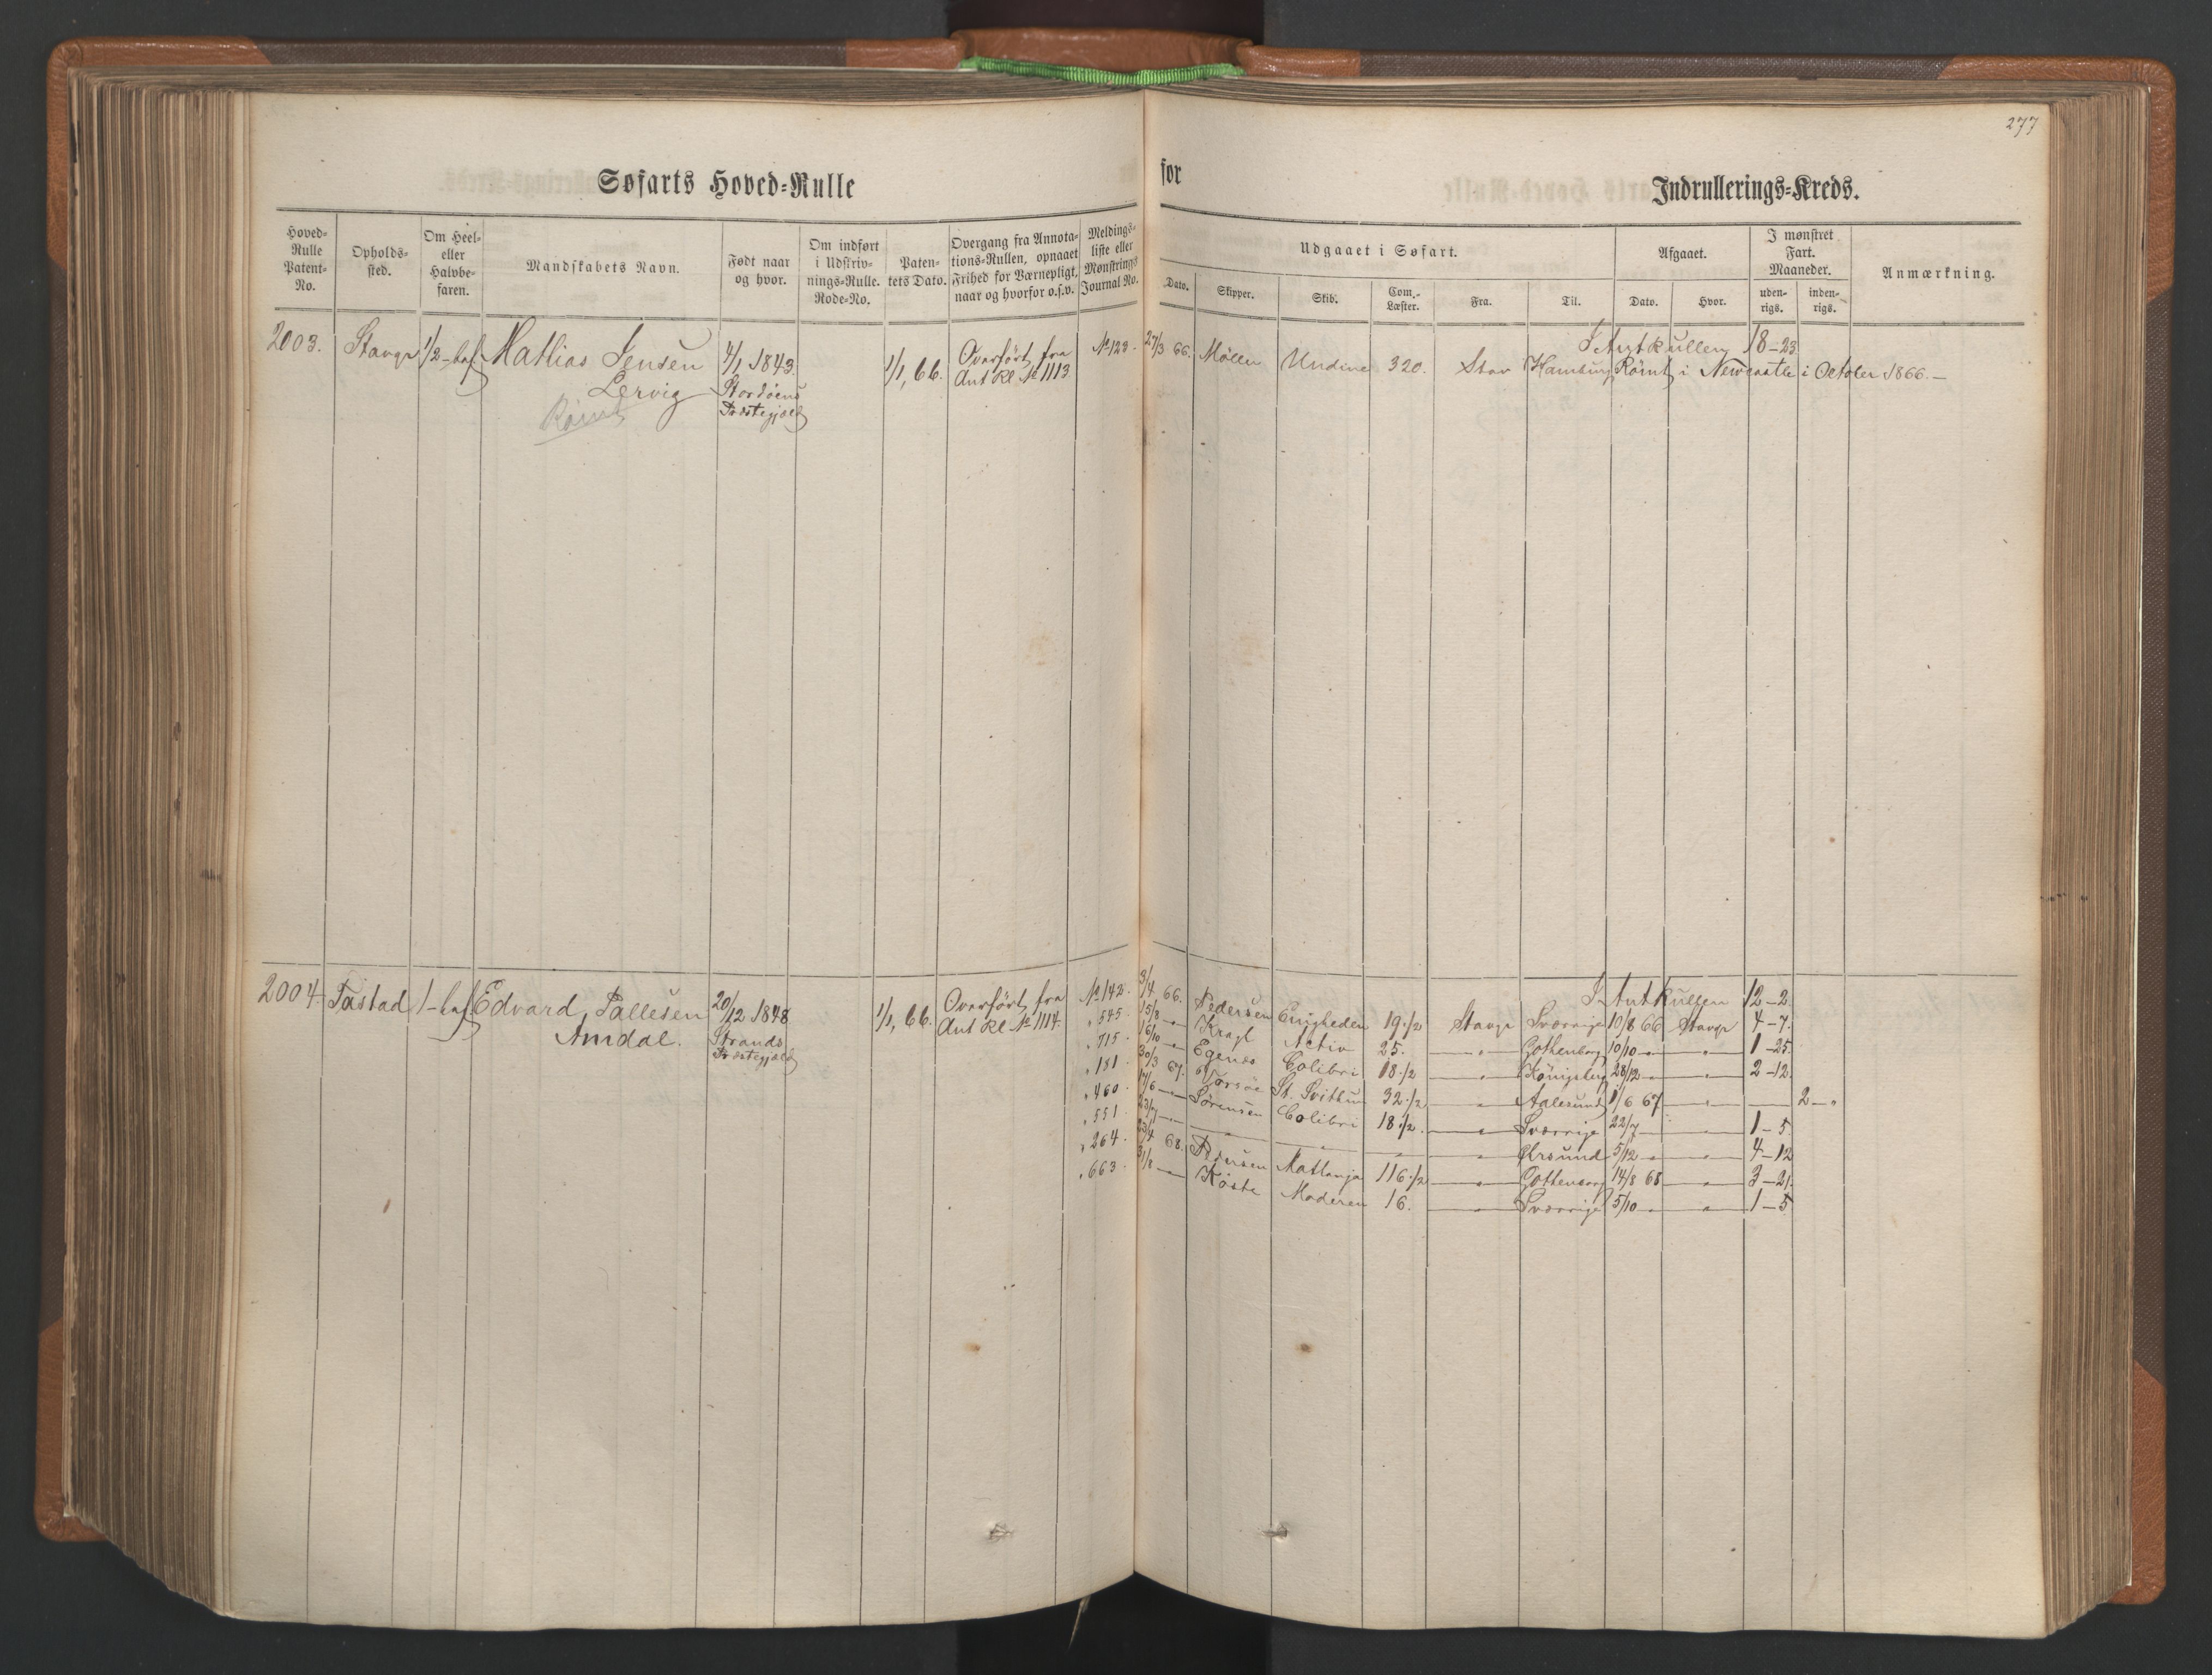 277
Søfarts Hoved-Rulle for Indrullerings-Kreds.
Hoved-Rulle Patent-No.
Opholds-sted.
Om Heel- eller Halvbe-faren.
Mandskabets Navn.
Født naar og hvor.
Om indført i Udskriv-nings-Rulle. Rode-No.
Paten-tets Dato.
Overgang fra Annota-tions-Rullen, opnaaet Frihed for Værnepligt, naar og hvorfor o.s.v.
Meldings-liste eller Mønstrings Journal No.
Udgaaet i Søfart.
Dato. Skipper. Skib. Com.-Læster. Fra. Til.
Afgaaet.
Dato. Hvor.
I mønstret Fart. Maaneder.
uden-rigs. inden-rigs.
Anmærkning.
2003. Stavgr 1/2-bef Mathias Jensen 4/1 1843. 1/1, 66. Overført fra № 123. 27/3 66. Möller Undine 320. Stav Hamburg Rømt i Newcastle i October 1866.—
Lervig Stordøens Ant Rl № 1113
Præstegjæld
Rømt
I Antrullen 18-23
2004. Tastad 1-bef Edvard Pallesen 20/12 1848 1/1, 66. Overført fra
Amdal. Strands Ant Rl № 1114.
Præstegjæld
I Antrullen 12-2
№ 142. 3/4 66. Pedersen Enigheden 19 1/2 Stavgr Sverrige 10/8 66 Stavgr 4-7.
" 545. 15/8 -"- Kragt Activ 25. -"- Gothenborg 10/10 -"- -"- 1-25.
" 715. 16/10 -"- Egenæs Colibri 18 1/2 -"- Königsberg 28/12 -"- -"- 2-12.
" 181. 30/3 67. St. Svithun 32 1/2 -"- Aalesund 1/6 67 -"- — 2-"
" 460. 17/6 -"- Sörensen Colibri 18 1/2. -"- Sverrige 22/7 -"- -"- 1-5
" 551. 23/7 -"- -"- -"- -"- -"- Ørsund 5/12 -"- -"- 4-12
" 264. 23/4 68. Pedersen Mattanja 116 1/2 -"- Gottenborg 14/8 68 -"- 3-21.
" 663. 31/8 — Köste Moderen 16. -"- Sverrige 5/10 -"- -"- 1-5